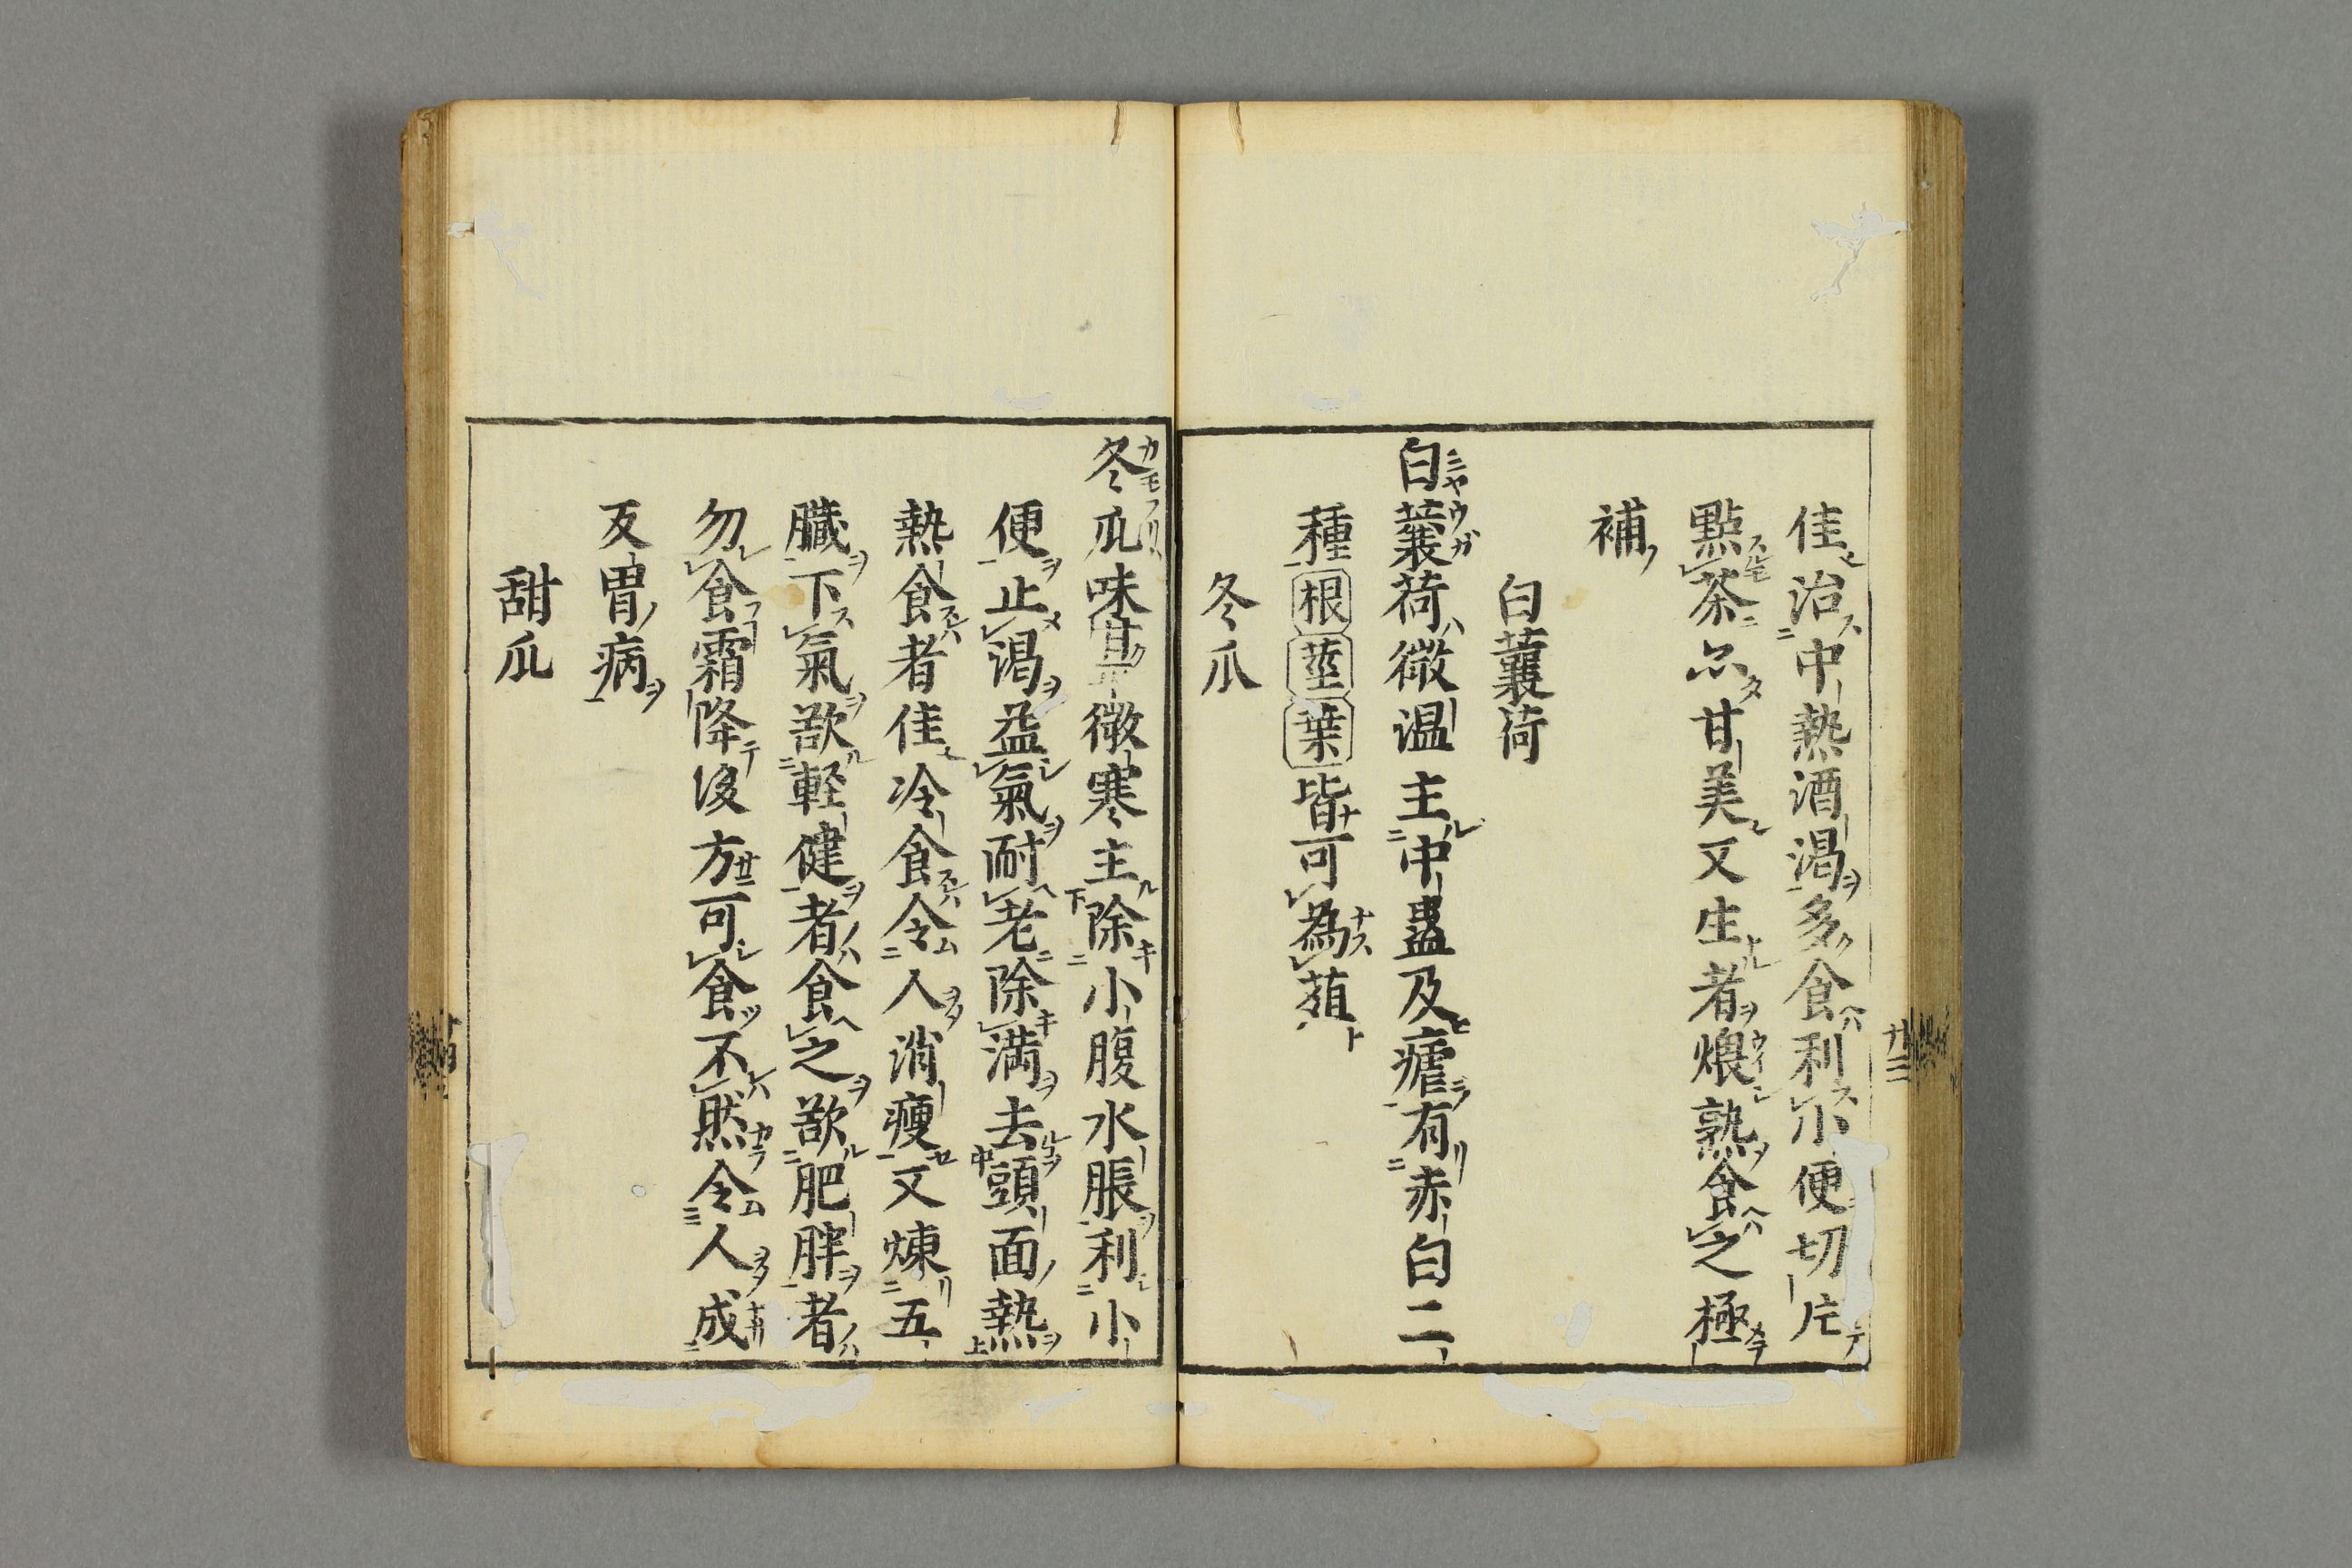 佳治中熱酒渇多食利小便切片
點茶尒甘美又生者煨熟食之極
補
白蘘荷
白蘘荷微温主中蠱及瘧有赤白二
種根莖葉皆可為葅
冬瓜
冬瓜味甘微寒主除小腹水脹利小
便止渇益氣耐老除満去頭面熱
熱食者佳冷食令人消瘦又煉五
臓下氣欲軽健者食之欲肥胖者
勿食霜降後方可食不然令人成
反胃病
甜瓜